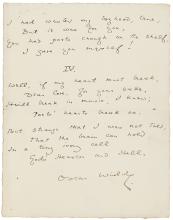 I had wasted my boyhood, true,
But it was for you,
You had poets enough on the shelf,
I gave you myself!
IV.
Well, if my heart must break,
Dear Love, for your sake,
It will break in music, I know,
Poets' hearts break so.
But strange that I was not told,
That the brain can hold
In a tiny ivory cell
God's Heaven and Hell.
Oscar Wilde